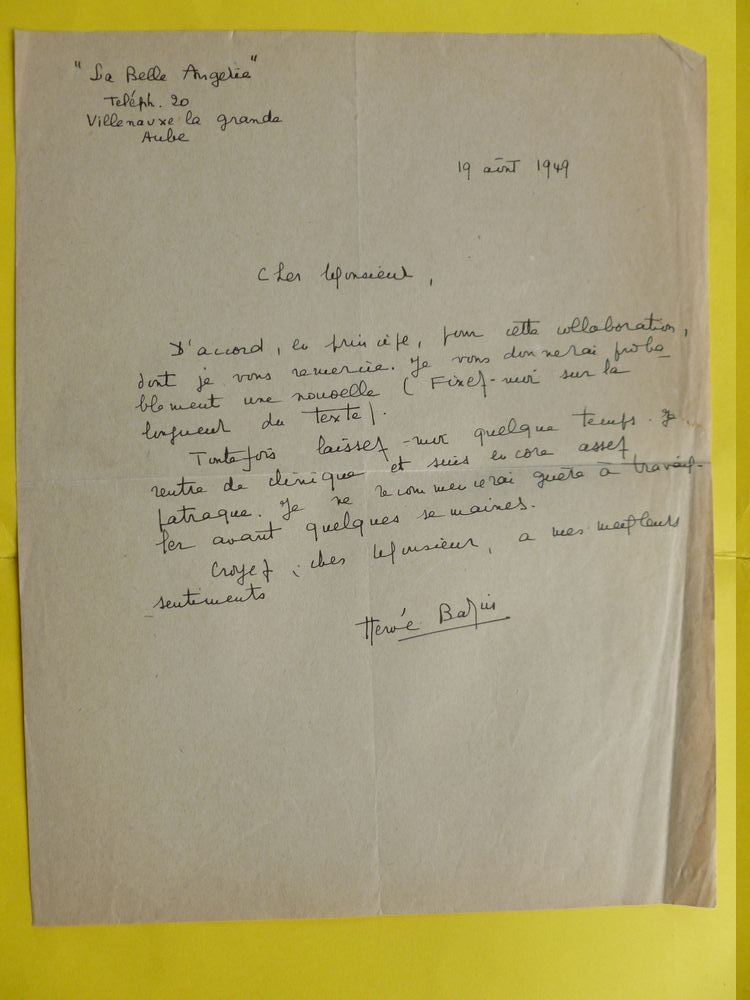 "La Belle Angerie"
Teléph. 20
Villenauxe la grande
Aube
19 août 1949
Cher Monsieur,
D'accord, en principe, pour cette collaboration,
dont je vous remercie. Je vous donnerai proba_
blement une nouvelle (Fixez-moi sur la
longueur du texte).
Toutefois laissez-moi quelque temps. Je
rentre de clinique et suis encore assez
patraque. Je ne recommencerai guère à travail-
ler avant quelques semaines.
Croyez, cher Monsieur, a mes meilleurs
sentiments
Hervé Bazin